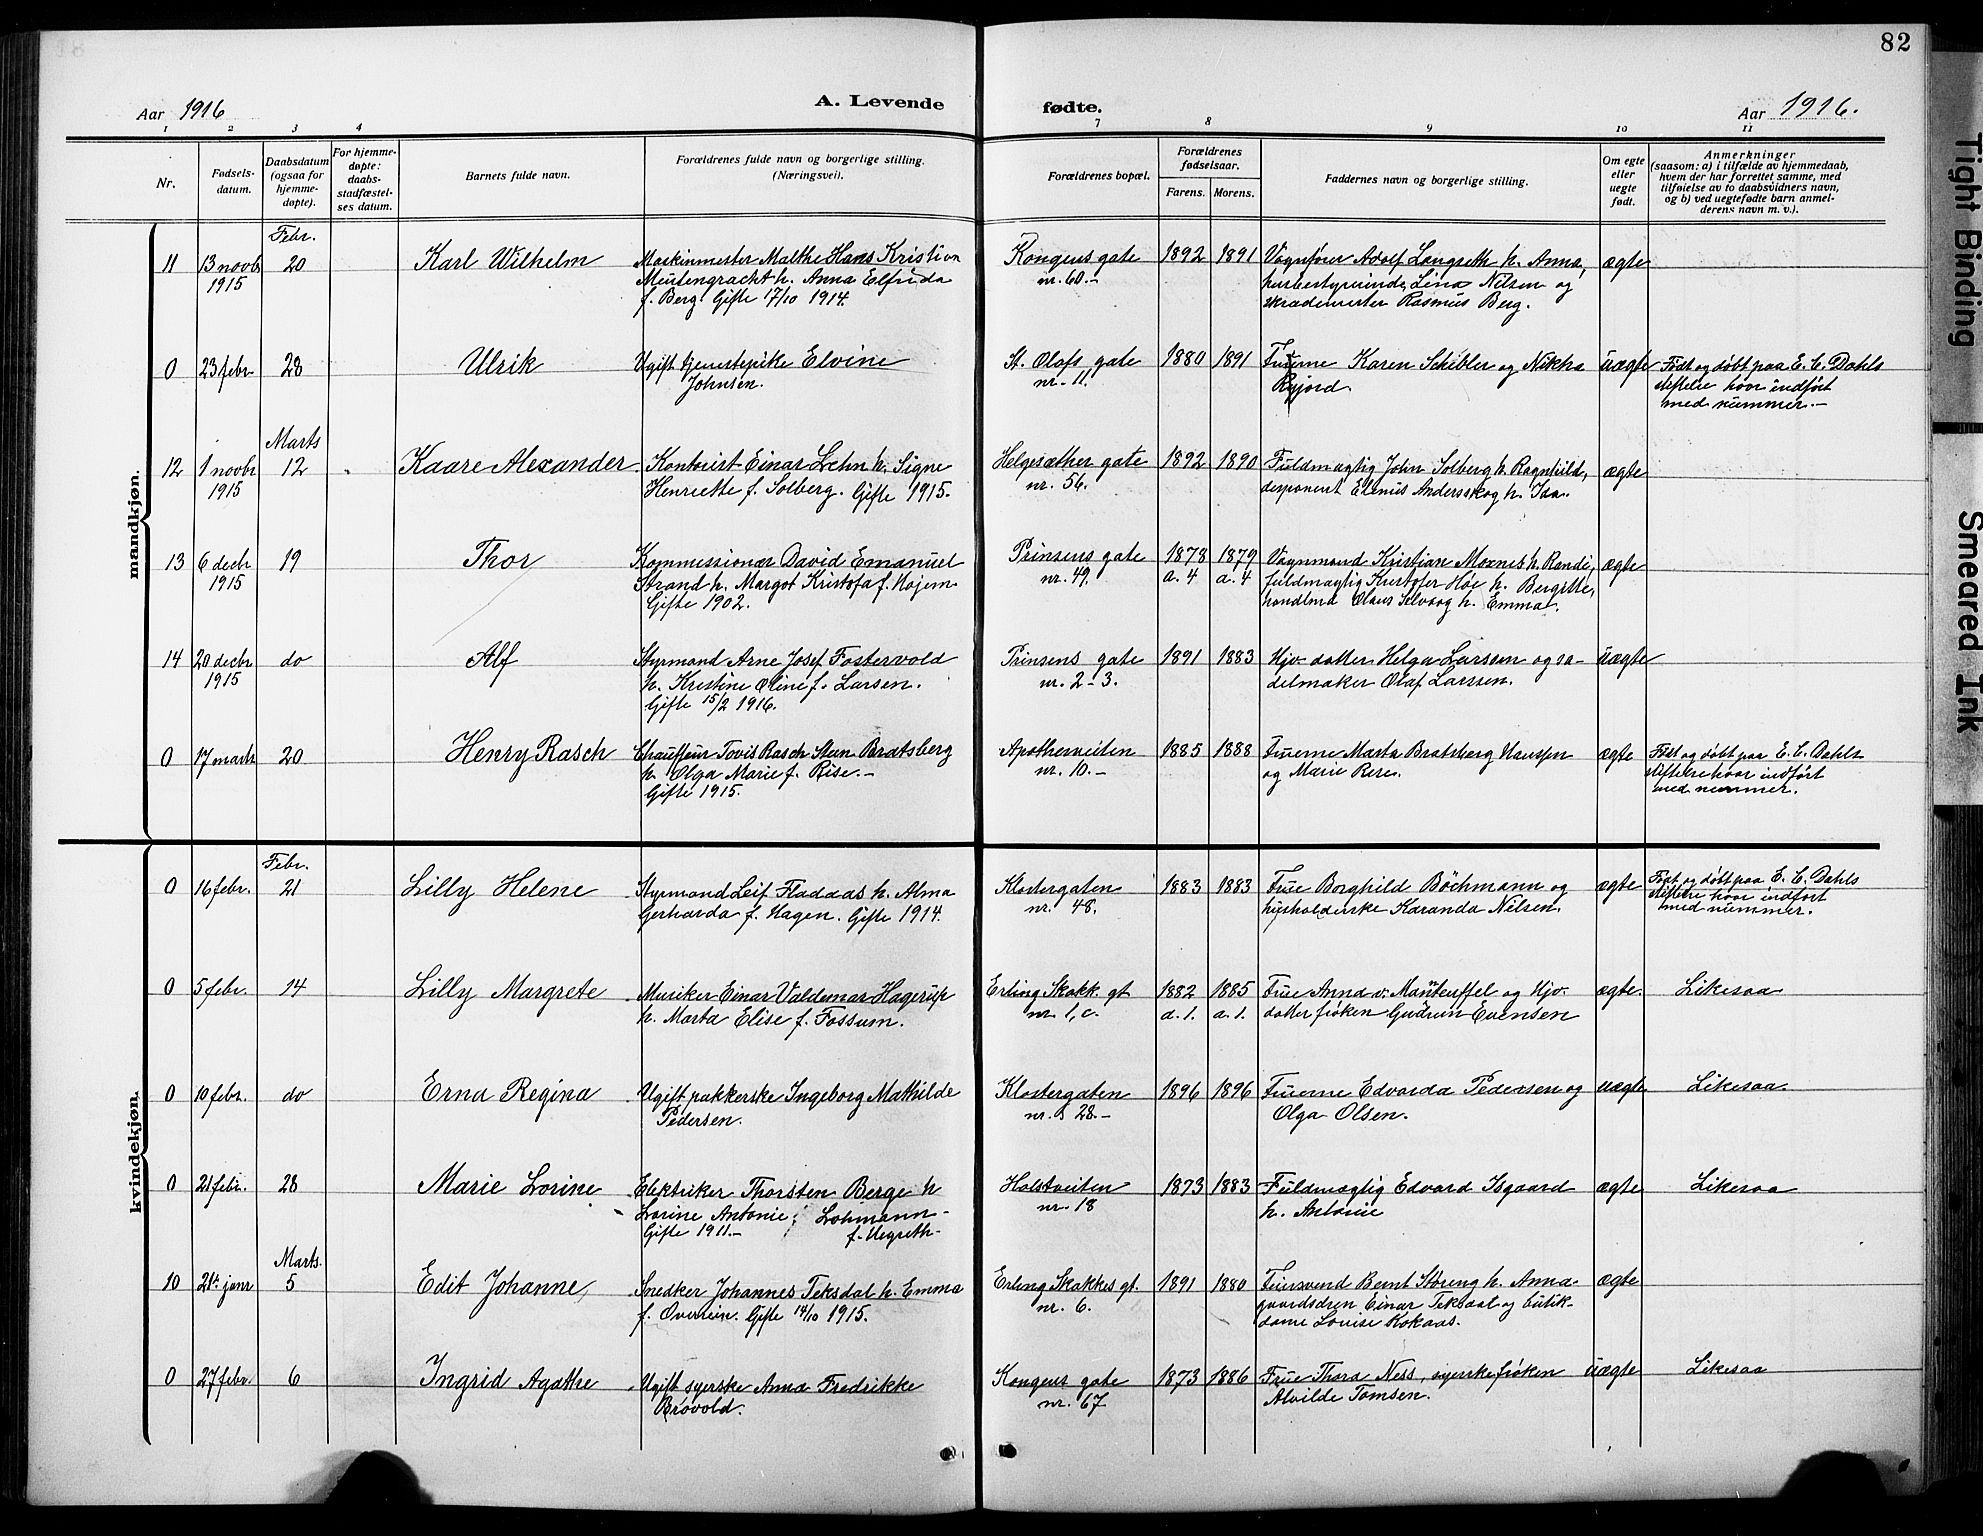 82
Aar 1916
A. Levende
fødte.
Aar 1916.
1 2 3 4 7 8 9 10 11
Nr.
Fødsels-
datum.
Daabsdatum
(ogsaa for
hjemme-
døpte).
For hjemme-
døpte:
daabs-
stadfæstel-
ses datum.
Barnets fulde navn.
Forældrenes fulde navn og borgerlige stilling.
(Næringsvei).
Forældrenes bopæl.
Forældrenes
fødselsaar.
Farens. Morens.
Faddernes navn og borgerlige stilling.
Om egte
eller
uegte
født.
Anmerkninger
(saasom: a) i tilfælde av hjemmedaab,
hvem der har forrettet samme, med
tilføielse av to daabsvidners navn,
og b) ved uegtefødte barn anmel-
derens navn m. v.).
mandkjøn.
Febr.
11 13 novbr 20 Karl Wilhelm Maskinmester Malthe Hans Kristian Kongens gate 1892 1891 Vognfører Adolf Langseth h. Anna, ægte
1915 h. Anna Elfrida nr. 60.- husbestyrerinde Lina Nilsen og
f. Berg. Gifte 17/10 1914. skrædemester Rasmus Berg.
0 23 febr 28 Ulrik Ugift tjenestepike Elvine St. Olafs gate 1880 1891 Fruerne Karen Schibler og Nikka uægte Født og døbt paa E. C. Dahls
Johnsen. nr. 11. Ryjord. stiftelse hvor indført
med nummer.-
Marts
12 1 novbr 12 Kaare Alexander Kontorist Einar Lehn h. Signe Helgesæther gate 1892 1890 Fuldmægtig John Solberg h. Ragnhild, ægte
1915 Henriette f. Solberg. Gifte 1915. nr. 56. disponent Andersskog h. Ida.
13 6 decbr 19 Thor Kommissionær David Emanuel Prinsens gate 1878 1879 Vognmand Kristian Moxnes h. Randi, ægte
1915 Strand h. Margot Kristofa f. Højem nr. 49. a. 4 a. 4 fuldmægtig Kristofer Høe h. Bergitte,
Gifte 1902. handlmd Olaus Selvaag h. Emma.
14 20 decbr do Alf Styrmand Arne Josef Fostervold Prinsens gate 1891 1883 Hjv. datter Helga Larssen og sa- uægte
1915 h. Kristine Oline f. Larsen. nr. 2-3. delmaker Olaf Larssen.
Gifte 15/2 1916.
0 17 marts 20 Henry Rasch Chauffeur Tovis Rasch Sten Bratsberg Apotherveiten 1885 1888 Fruerne Marta Bratsberg Hanssen ægte Født og døbt paa E. C. Dahls
h. Olga Marie f. Rise.- nr. 10.- og Marie Rere. stiftelse hvor indført
Gifte 1915. med nummer.
kvindekjøn.
Febr.
0 16 febr. 21 Lilly Helene Styrmand Leif Fladaas h. Alma Klostergaten 1883 1883 Frue Borghild Böchmann og ægte Født og døbt paa E. C. Dahls
Gerharda f. Hagen. Gifte 1914. nr. 48. husholderske Karanda Nilsen. stiftelse hvor indført
med nummer.
0 5 febr. 14 Lilly Margrete Musiker Einar Valdemar Hagerup Erling Skakk. gt 1882 1885 Frue Anna v. Manteuffel og Hjv. ægte. Likesaa
h. Marta Elise f. Fossum. nr. 1, c. a. 1. a. 1. datter frøken Gudrun Evensen
0 10 febr. do Erna Regina Ugift pakkerske Ingeborg Mathilde Klostergaten 1896 1896 Fruerne Edvarda Pedersen og uægte Likesaa
Pedersen. nr. 28.- Olga Olsen.
0 21 febr. 28 Marie Lorine Elektriker Thorsten Berge h Holstveiten 1873 1883 Fuldmægtig Edvard Isgaard ægte Likesaa
Lorine Antonie Lohmann nr. 18 h. Antonie
Gifte 1911.- f. Uegseth-
Marts.
10 21 janr 5 Edit Johanne Snedker Johannes Teksdal h. Emma Erling Skakkes gt. 1891 1880 Bernt Støreng h. Anna ægte
f. Overrein. Gifte 14/10 1915. nr. 6. gaardsdren Einar Teksdal og butik-
dame Lovise Kokaas.
0 27 febr. 6 Ingrid Agathe Ugift syerske Anna Fredrikke Kongens gate 1873 1886 Frue Thora Ness, syerske frøken uægte Likesaa
Brøvold. nr. 67 Alvilde Tomsen.
Tight Binding
Smeared Ink